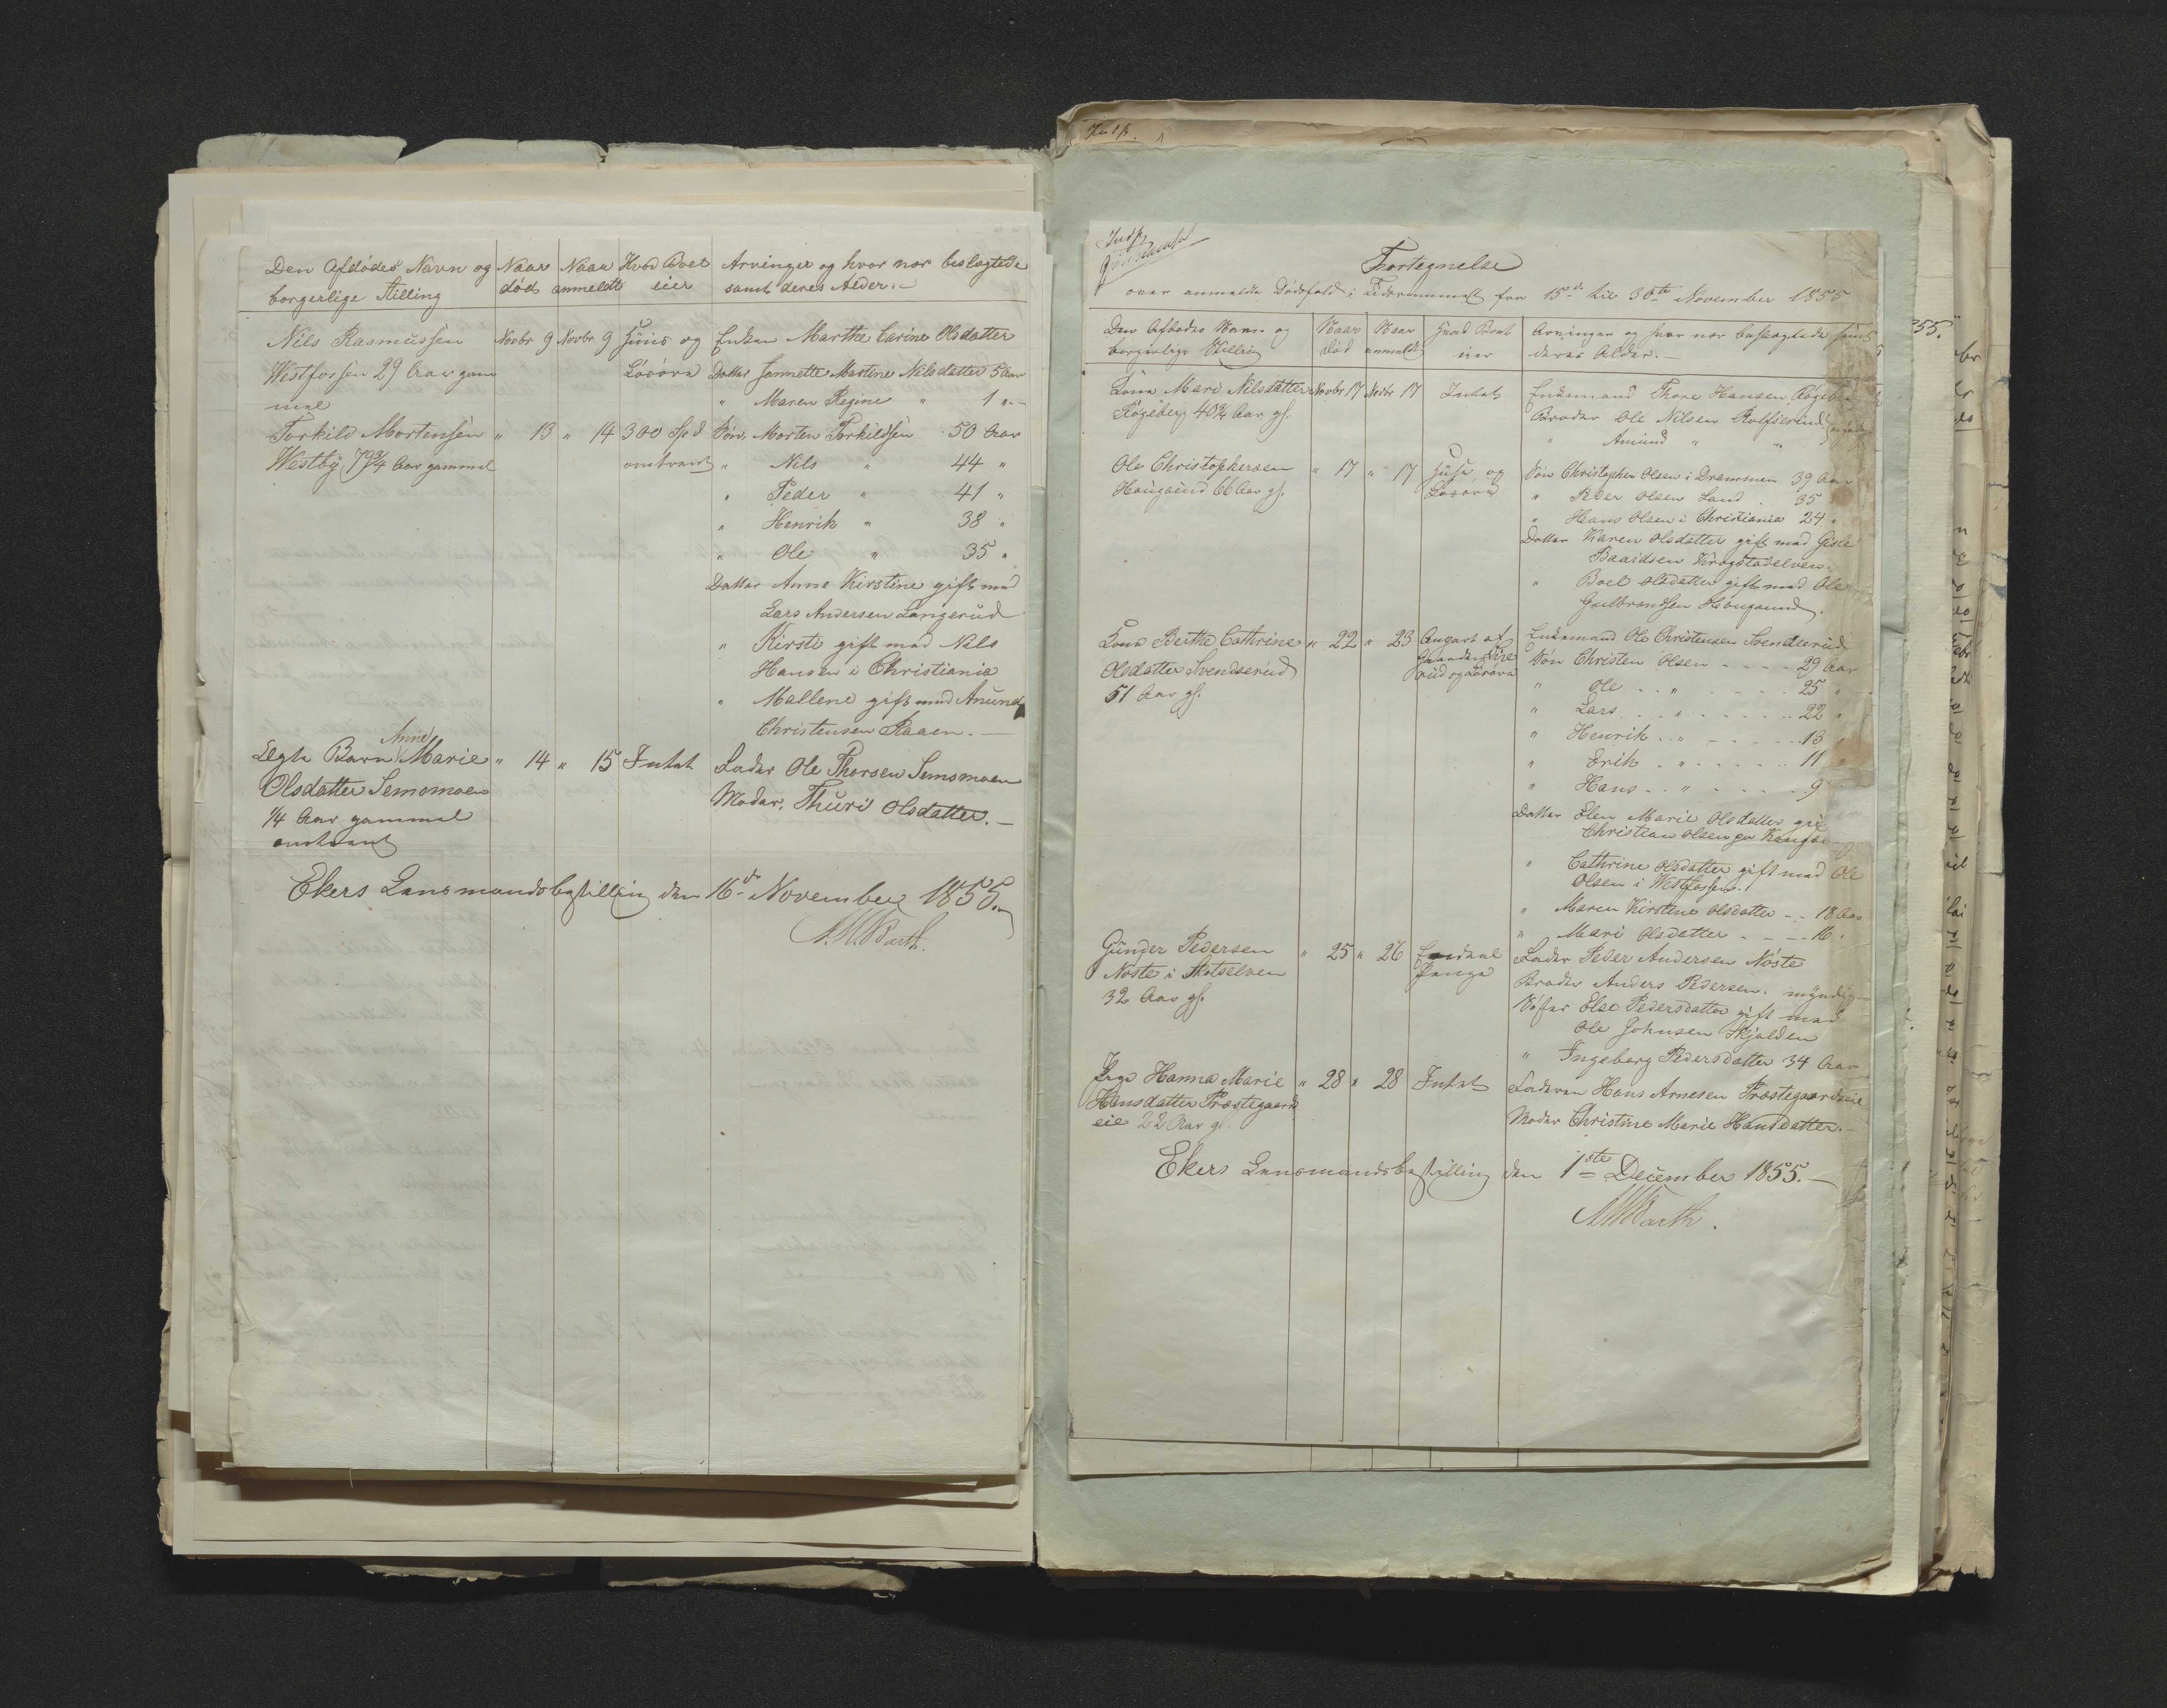 Den Afdødes Navn og borgerlige Stilling
Naar død
Naar anmeldt
Hvad Boet eier
Arvinger og hvor nær beslægtede samt deres Alder.-
Nils Rasmussen Novbr 9 Novbr 9 Huus og Enken Marthe Carine Olsdatter
Westfossen 29 Aar gam Løsøre Datter Jannette Martine Nilsdatter 5 Aar
mel " Maren Regine " 1 "
Torkild Mortensen " 13 " 14 300 Spd Søn, Morten Torkildsen 50 Aar
Westby 79¾ Aar gammel omtrent " Nils " 44 "
" Peder " 41 "
" Henrik " 38 "
" Ole " 35 "
Datter Anne Kirstine gift med
Lars Andersen Langerud
" Kirsti gift med Nils
Hansen i Christiania
" Mallene gift med Anund
Christensen Raaen.-
Anne
Ægte Barn Marie " 14 " 15 Intet Fader Ole Thorsen Semsmoen
Olsdatter Semsmoen Moder, Thuri Olsdatter.-
¼ Aar gammel
omtrent
Ekers Lensmandsbestilling den 16de November 1855.
Barth.
Fortegnelse
over anmeldte Dødsfald i Tidsrummet fra 15de til 30te November 1855
Den Afdødes Navn og borgerlige Stilling
Naar død
Naar anmeldt
Hvad Boet eier
Arvinger og hvor nær beslægtede samt
deres Alder.-
Kone Mari Nilsdatter Novbr 17 Novbr 17 Intet Enkemand Thore Hansen
40¾ Aar gl. Broder Ole Nilsen Rolfserud
" Amund " "
Ole Christophersen " 17 " 17 Huse og Søn Christopher Olsen i Drammen 39 Aar
Hougsund 66 Aar gl. Løsøre " Peder Olsen Land 35
" Hans Olsen i Christiania 24 "
Datter Karen Olsdatter gift med Gisle
Baardsen Krogstadelven.
" Boel Olsdatter gift med Ole
Gulbrandsen Hougsund.
Kone Berthe Cathrine " 22 " 23 Enkemand Ole Christensen Svendserud
Olsdatter Svendserud Gaarden Søn Christen Olsen 29 Aar
51 Aar gl. rud og Løsøre " Ole " 25 "
" Lars " 22 "
" Henrik " 13 "
" Erik " 11 "
" Hans " 9
Datter Elen Marie Olsdatter
Christian Olsen
" Cathrine Olsdatter gift med Ole
Olsen i Westfossen.
" Maren Kirstine Olsdatter 18 Aar
" Mari Olsdatter 16 "
Gunder Pedersen " 25 " 26 Fader Peder Andersen Nøste
Nøste i Skotselven Penge Broder Anders Pedersen. myndig
32 Aar gl. Søster Else Pedersdatter gift med
Ole Johnsen Skjalden
" Ingeborg Pedersdatter 34 Aar
Pige Hanna Marie " 28 " 28 Intet Faderen Hans Arnesen Præstegaardseie
Hansdatter Præstegaards Moder Christine Marie Hansdatter.-
eie 22 Aar gl.
Ekers Lensmandsbestilling den 1ste December 1855.-
Barth.